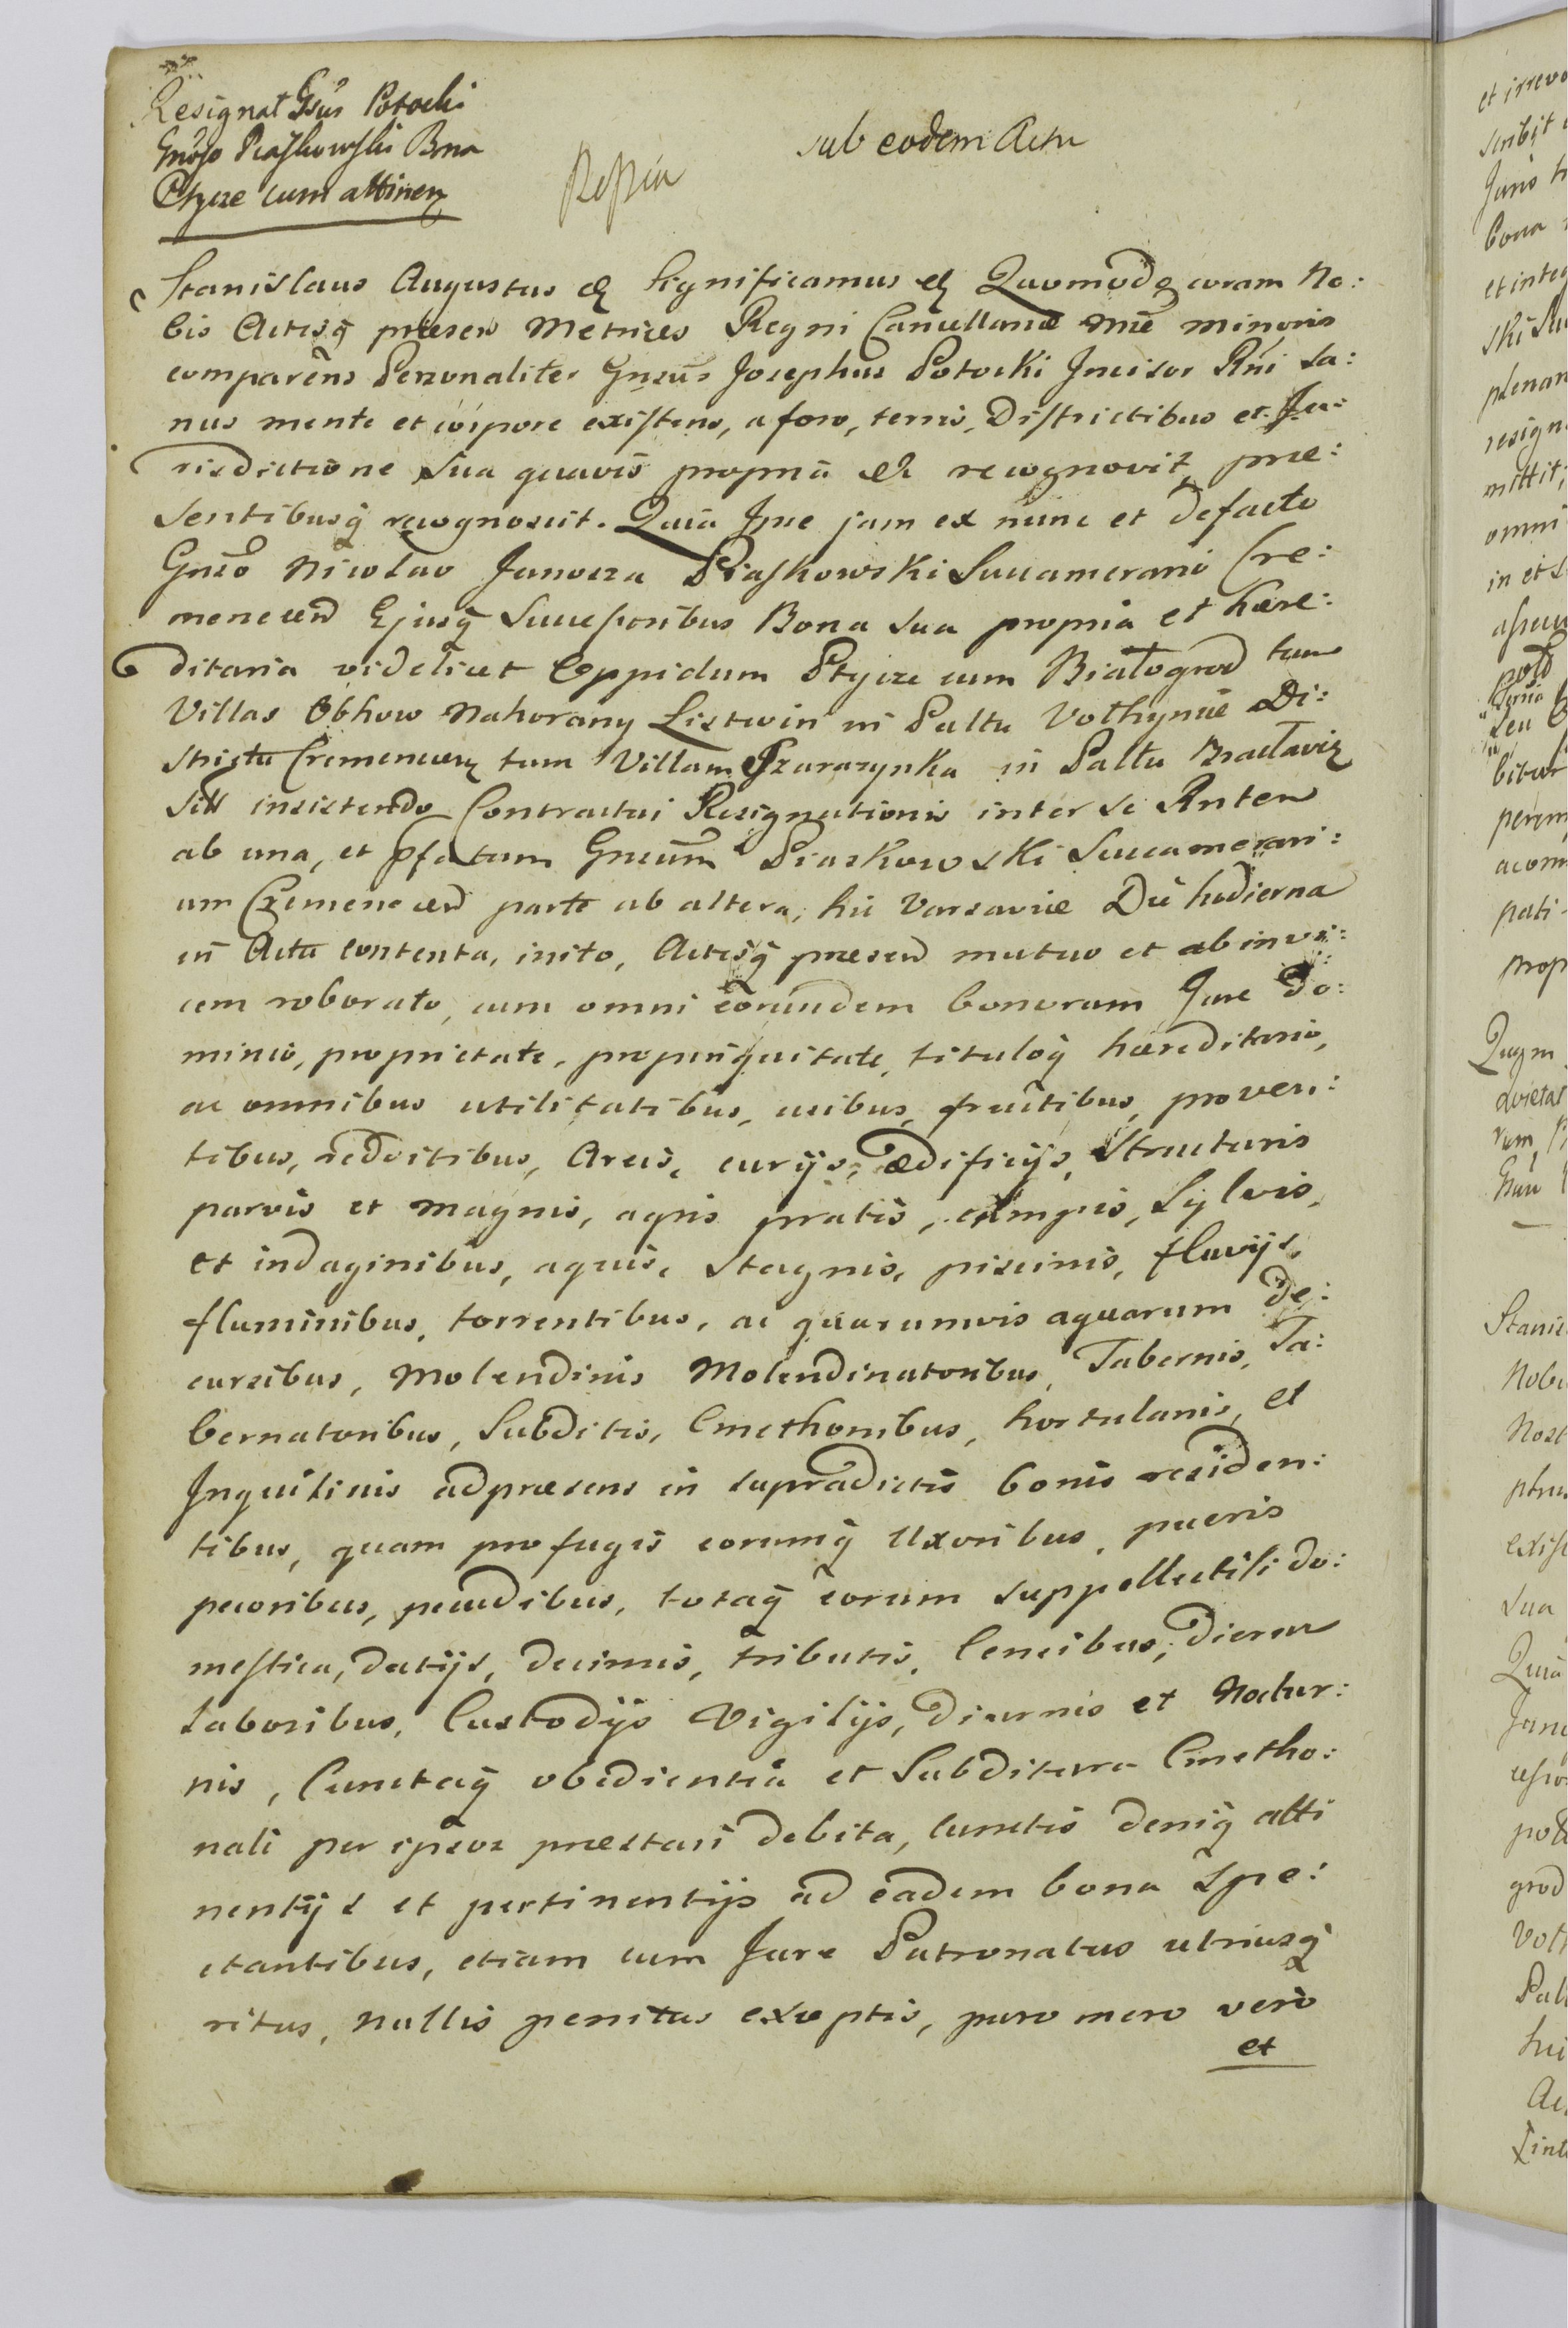 Resignat Gsus Potocki
Gnoso Piaskowski Bona
Ptycze cum attinen
sub eodem Actu
Stanislaus Augustus &c Significamus &c Quomodo coram No:
bis Actisq̃ præsen Metrices Regni Cancellariæ Mĩe minoris
comparens Personaliter Gnsus Josephus Potocki Incisor Rñi sa:
nus mente et corpore existens, a foro, terris, Districtibus et Ju:
risdictione sua quavis propria &c recognovit, præ:
sentibusq̃ recognoscit. Quia Ipse jam ex nunc et defacto
Gnso Nicolao Junosza Piaskowski Succamerario Cre:
menecen Ejusq̃ Successoribus Bona sua propria et hære:
ditaria videlicet Oppidum Ptycze cum Białogrod tum
Villas Obhow Nahorany Listwin in Paltu Volhyniæ Di:
strictu Cremenecen tum Villam in Paltu Braclavien
sitt insistendo Contractui Resignationis inter se Anten
ab una, et pfatum Gnsum Piaskowski Succamerari:
um Czemenecen parte ab altera, hic Varsaviæ Die hodierna
in Actu contenta, inito, Actisq̃ præsen mutuo et ab invi:
cem roborato, cum omni eorundem bonorum Jure do:
minio, proprietate, propinquitate, tituloq̃ hæreditario,
ac omnibus utilitatibus, usibus, fructibus, proven:
tibus, redditibus, Areis, curijs, ædificijs, Structuris
parvis et magnis, agris pratis, campis, Sylvis,
et indaginibus, aquis, stagnis, piscinis, fluvijs,
fluminibus, torrentibus, ac quarumvis aquarum de:
cursibus, Molendinis Molendinatoribus, Tabernis, Ta:
bernatoribus, Subditis, Cmethonibus, hortulanis, et
Inquilinis adpræsens in supradictis bonis residen:
tibus, quam profugis eorumq̃ Uxoribus, pueris
pecoribus, pecudibus, totaq̃ eorum suppellectili do:
mestica, datijs, decimis, tributis, Censibus, dierum
laboribus, Custodijs Vigilijs, diurnis et Noctur:
nis, Cunctaq̃ obedientia et Subditura Cmetho:
nali per ipsos præstari debita, cunctis deniq̃ atti
nentijs et pertinentijs ad eadem bona Spe:
ctantibus, etiam cum Jure Patronatus utriusq̃
ritus, nullis penitus exceptis, puro mero vero
et